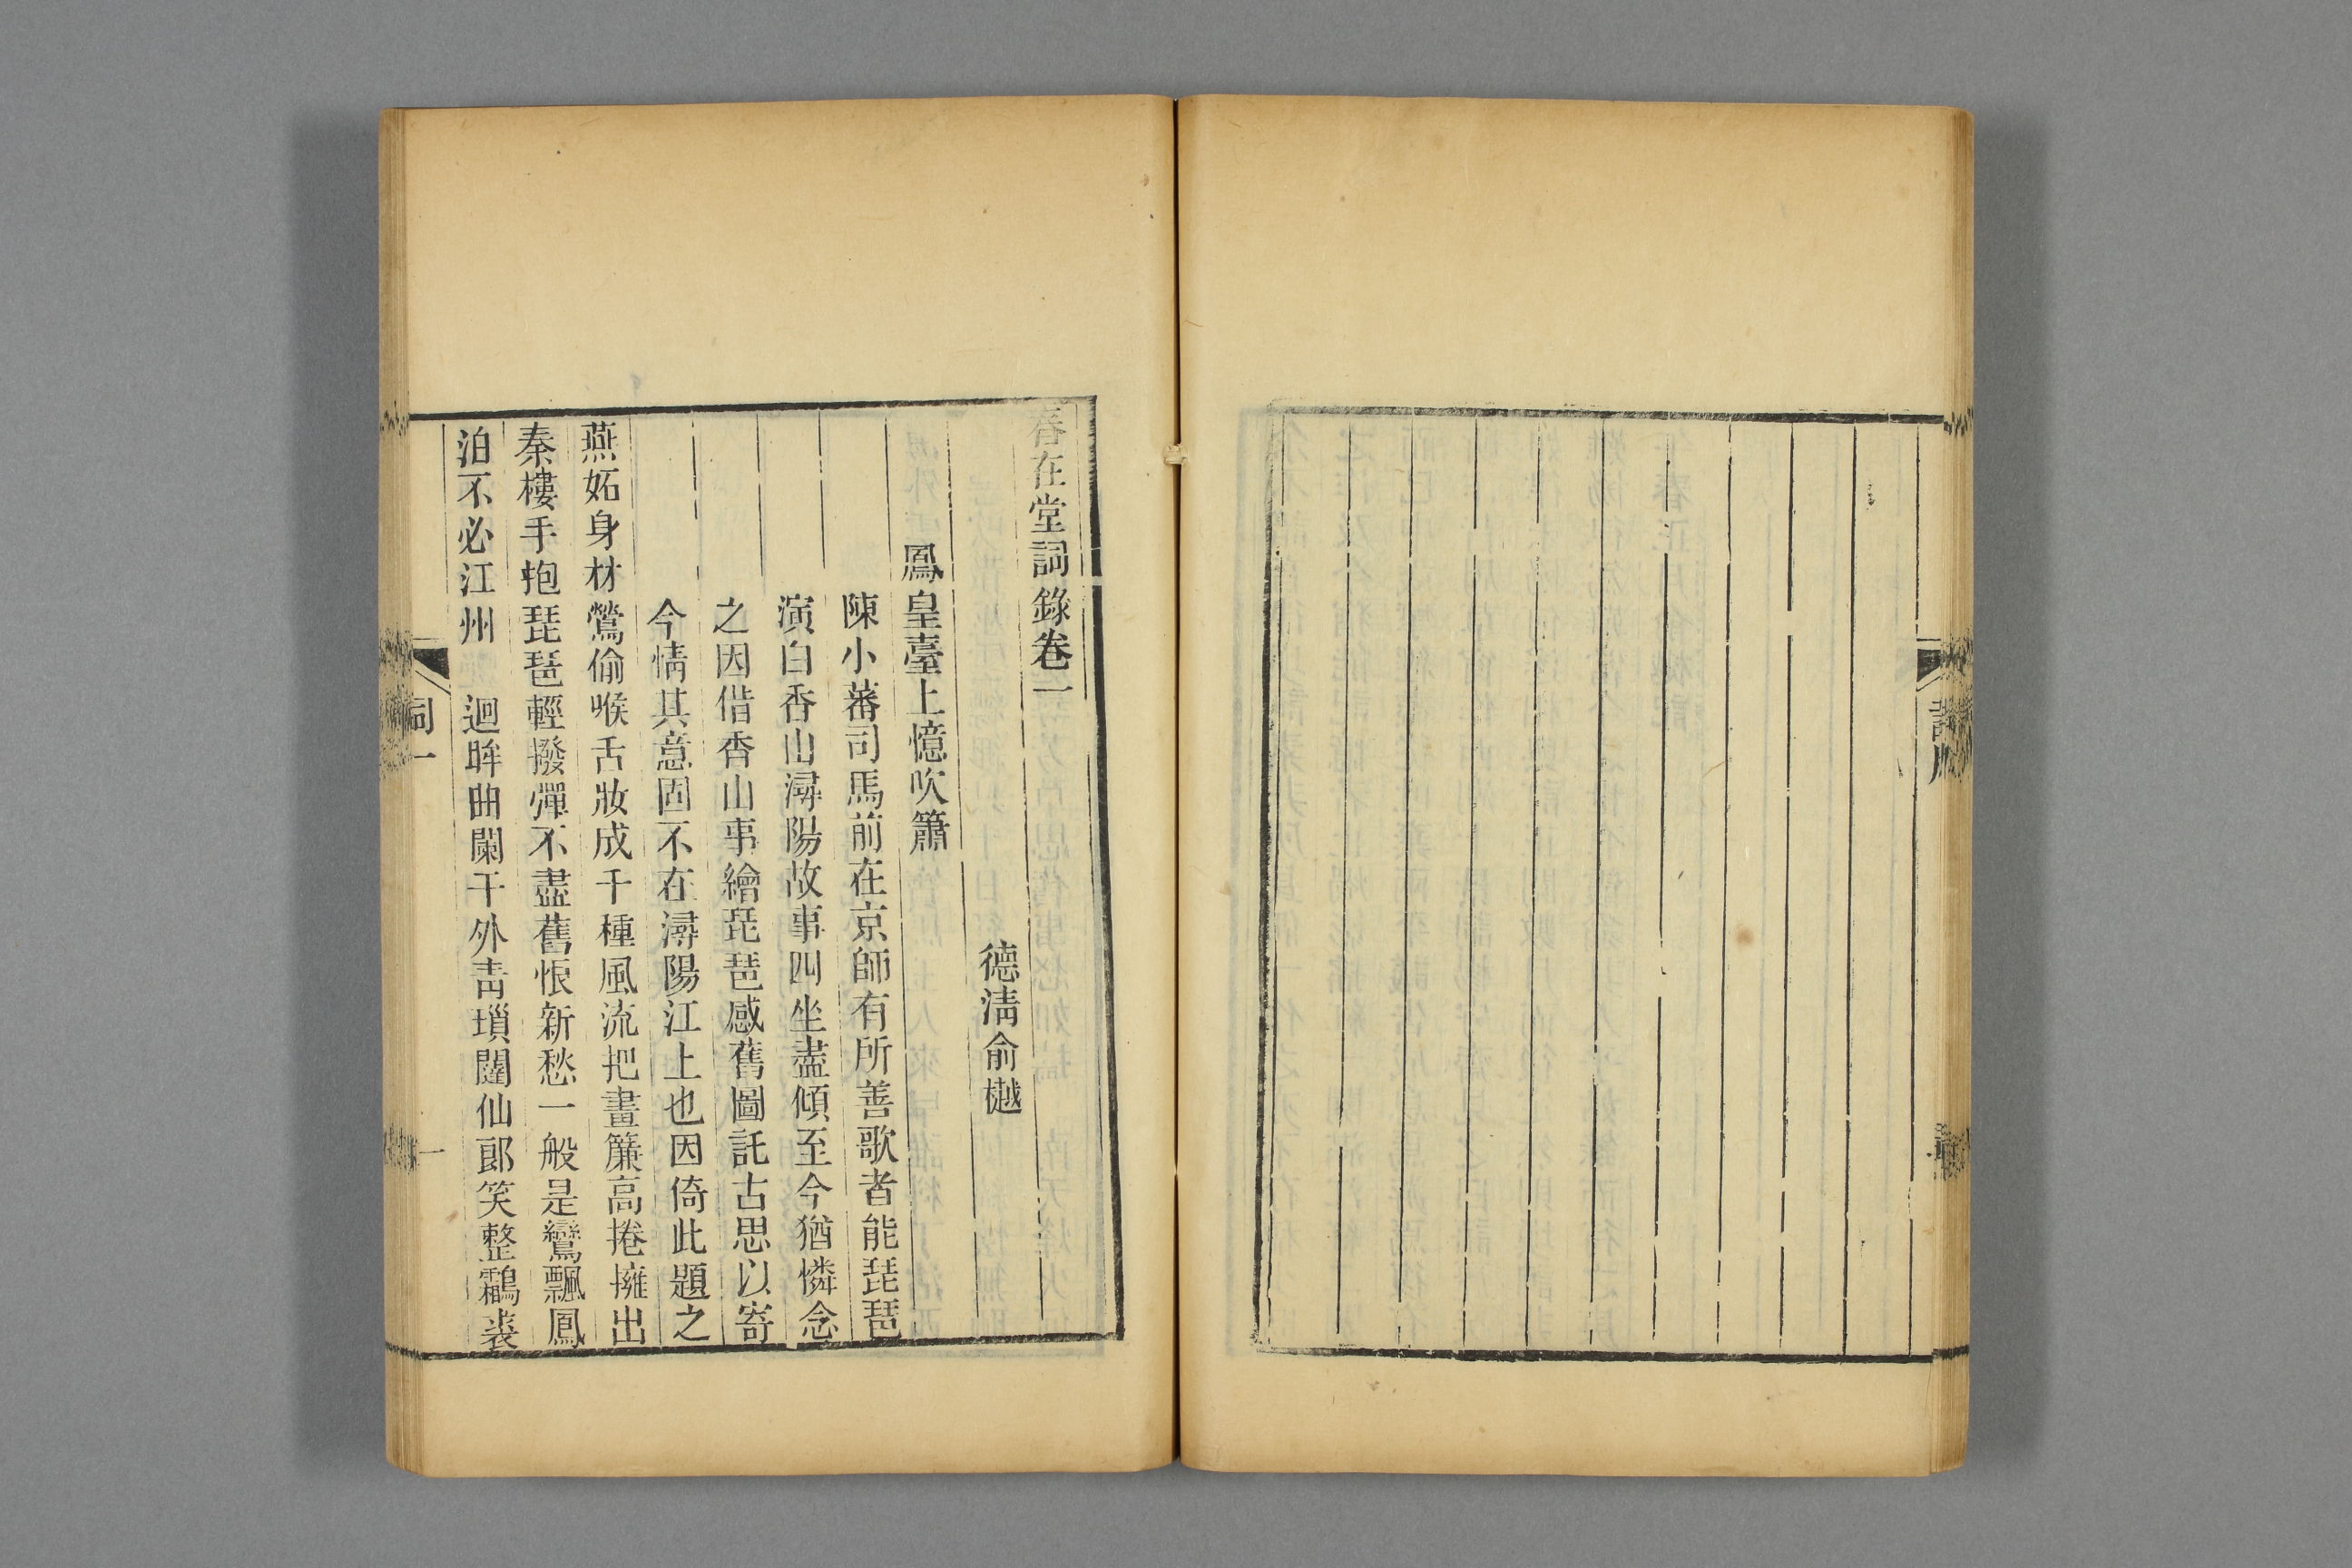 春在堂詞錄卷一
德清俞樾
鳳皇臺上憶吹簫
陳小蕃司馬前在京師有所善歌者能琵琶
演白香山潯陽故事四坐盡傾至今猶憐念
之因借香山事繪琵琶感舊圖託古思以寄
今情其意固不在潯陽江上也因倚此題之
燕妬身材鶯偷喉舌妝成千種風流把畫簾高捲擁出
秦樓手抱琵琶輕撥彈不盡舊恨新愁一般是鸞飄鳳
泊不必江州　迴眸曲闌干外靑瑣闥仙郎笑整鸘裘
詞一
一